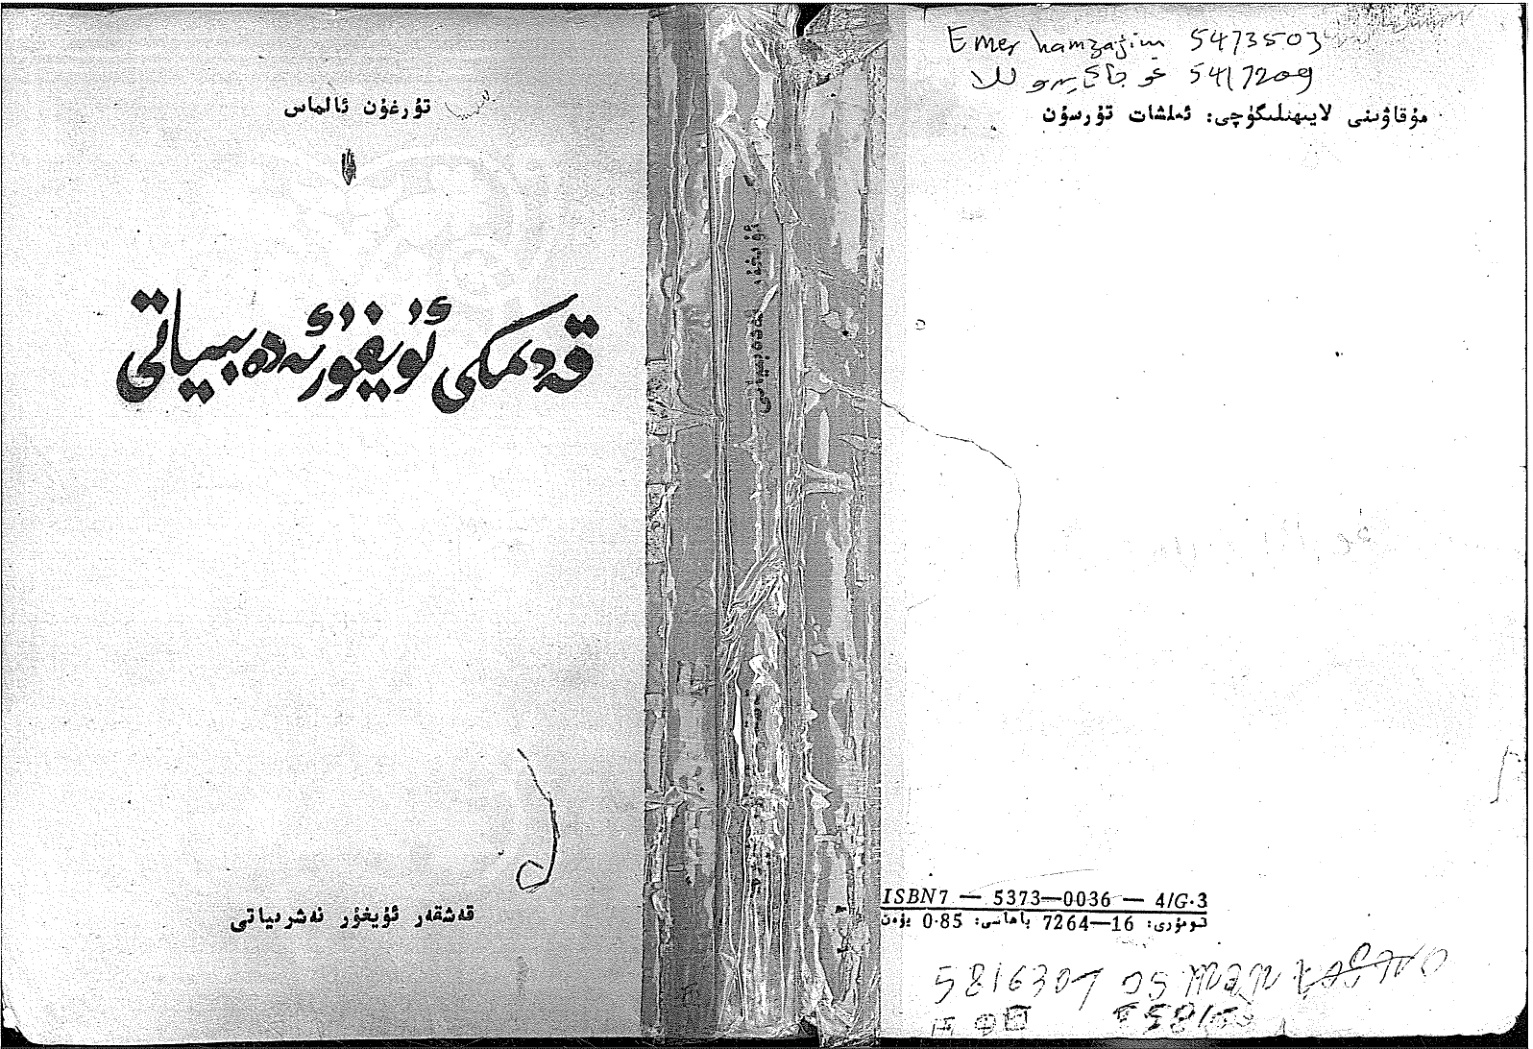 تۇرغۇن ئالماس
قەدىمكى ئۇيغۇر ئەدەبىياتى
قەشقەر ئۇيغۇر نەشرىياتى
ئۇيغۇر ئەدەبىياتى
Emer hamzajim 5473503
5417209
مۇقاۋىنى لايىھىلىگۈچى: ئەلشات تۇرسۇن
ISBN7 — 5373—0036 — 4/G·3
نومۇرى: 16—7264 باھاسى: 0·85 يۈەن
5816307 OSMAN